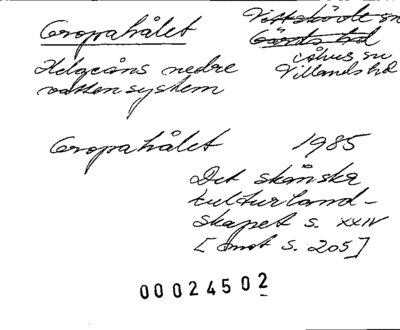 Gropahålet
Vittskövle sn
Gärds hd
Åhus sn
Villands hd
Helgeåns nedre
vattensystem
Gropahålet 1985
Det skånska
kulturland-
skapet s. XXIV
[ s. 205]
00024502